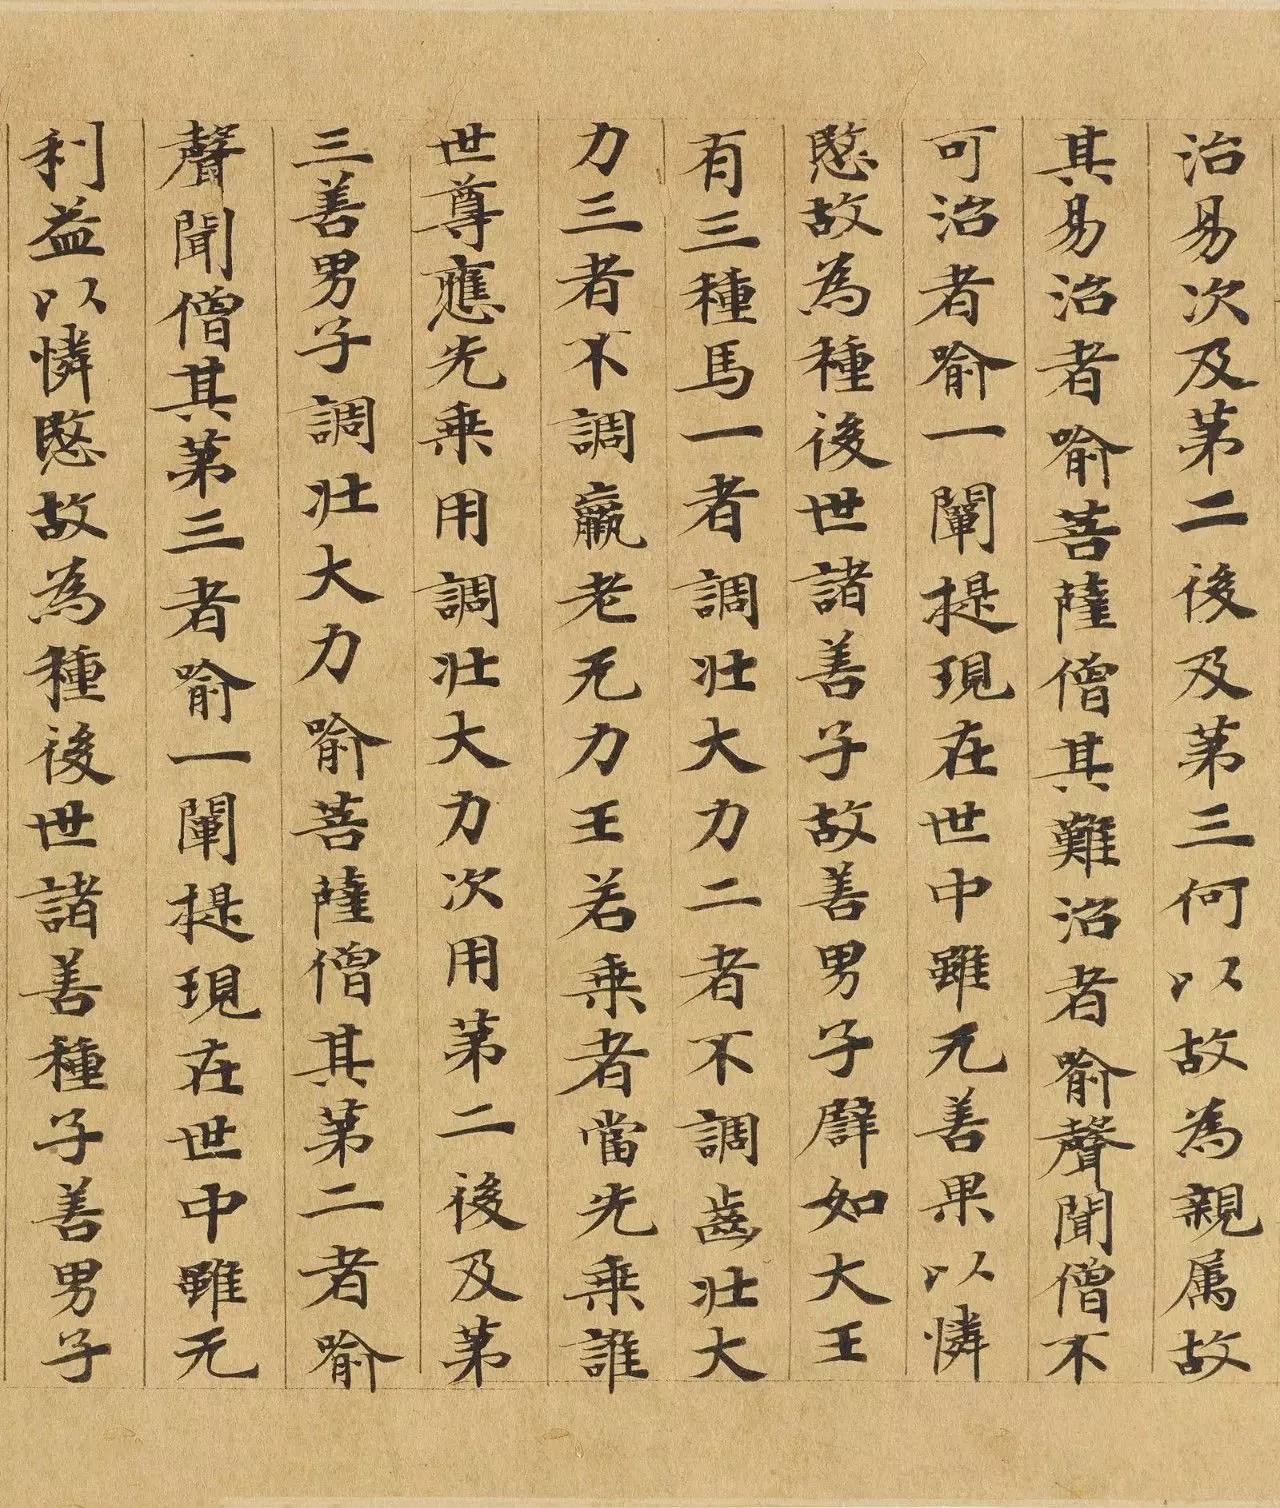 治易次及第二後及第三何以故為親属故
其易治者喻菩薩僧其難治者喻聲聞僧不
可治者喻一闡提現在世中雖无善果以憐
愍故為種後世諸善子故善男子譬如大王
有三種馬一者調壯大力二者不調齒壯大
力三者不調羸老无力王若乘者當先乘誰
世尊應先乘用調壯大力次用第二後及第
三善男子調壯大力喻菩薩僧其第二者喻
聲聞僧其第三者喻一闡提現在世中雖无
利益以憐愍故為種後世諸善種子善男子